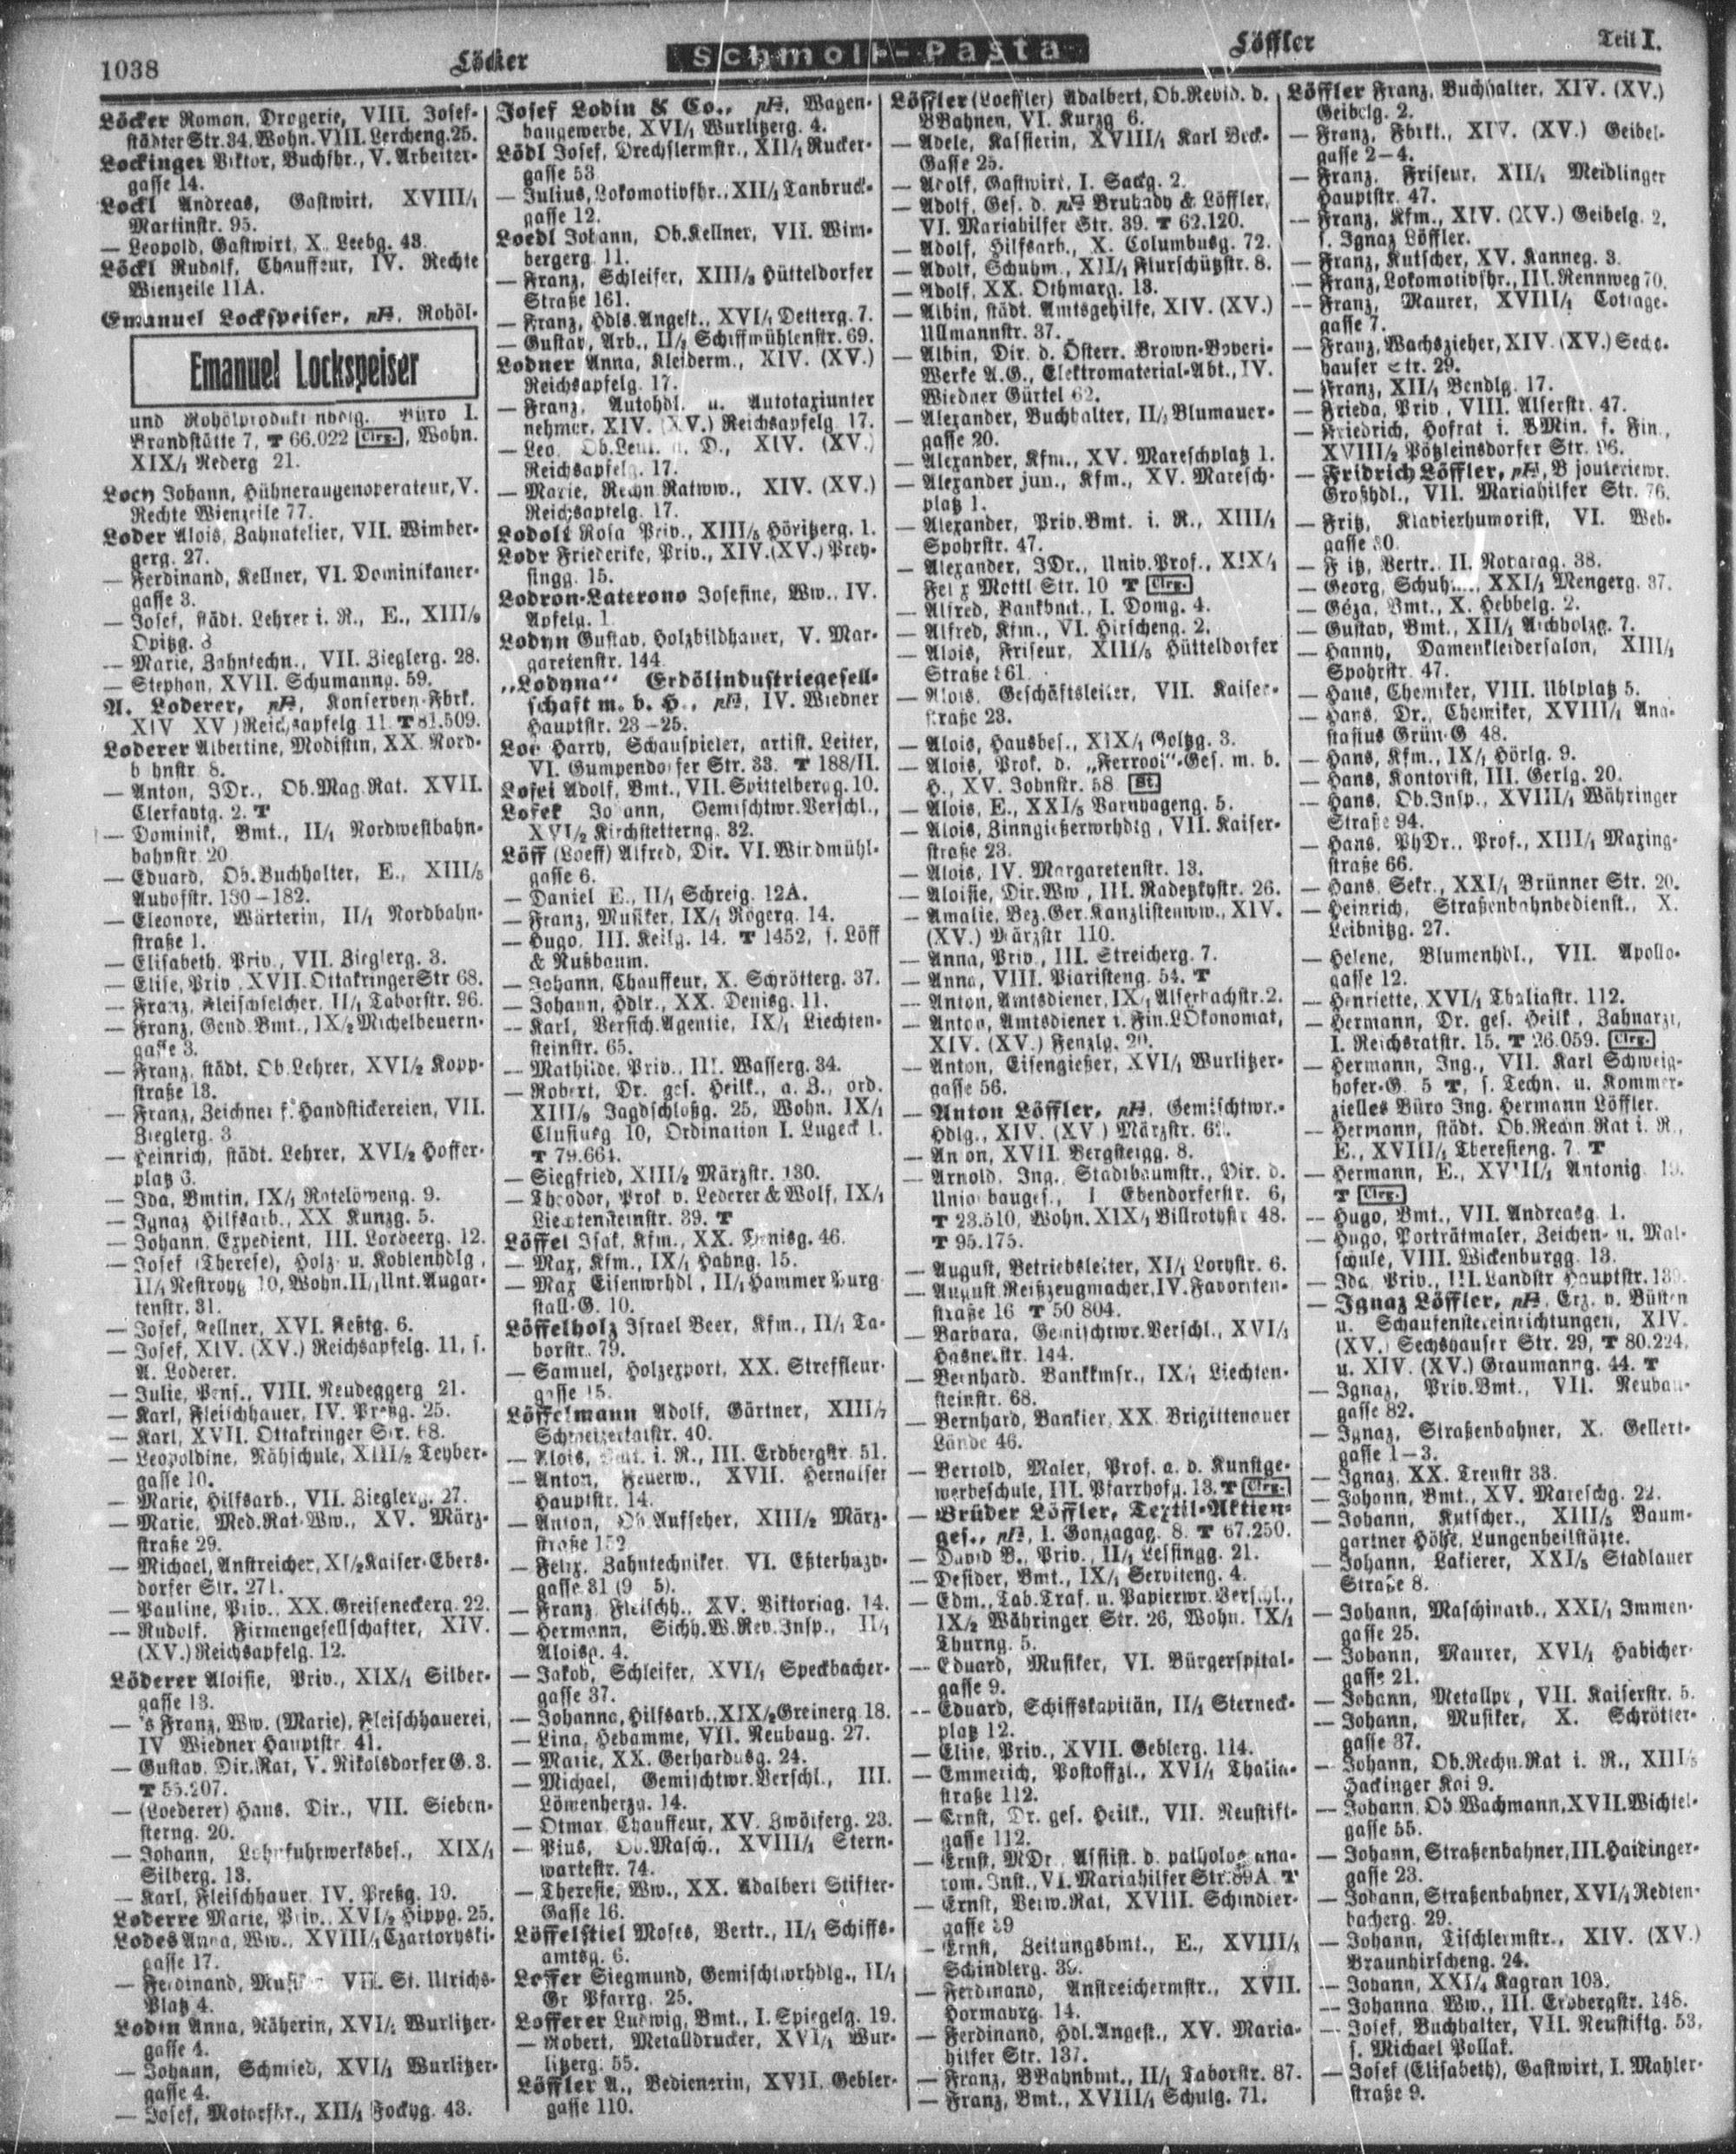 1038
Löcker
Schmoll-Pasta
Löffler
Teil I.
Löcker Roman, Drogerie, VIII. Josef-
städter Str. 34, Wohn. VIII. Lercheng. 25.
Lockinger Viktor, Buchhr., V. Arbeiter-
gasse 14.
Lockl Andreas, Gastwirt, XVIII/1
Martinstr. 95.
— Leopold, Gastwirt, X. Leebg. 43.
Löckl Rudolf, Chauffeur, IV. Rechte
Wienzeile 11A.
Emanuel Lockspeiser, Rohöl-
Emanuel Lockspeiser
und Rohölproduktenhdlg. Büro I.
Brandstätte 7, T 66.022 Clrg., Wohn.
XIX/1 Rederg 21.
Locy Johann, Hühneraugenoperateur, V.
Rechte Wienzeile 77.
Loder Alois, Zahnatelier, VII. Wimber-
gerg. 27.
— Ferdinand, Kellner, VI. Dominikaner-
gasse 3.
— Josef, städt. Lehrer i. R., E., XIII/9
Opitzg. 3
— Marie, Zahntechn., VII. Zieglerg. 28.
— Stephan, XVII. Schumanng. 59.
A. Loderer, Konserven-Fbrk.
XIV (XV.) Reichsapfelg 11. T 81.509.
Loderer Albertine, Modistin, XX. Nord-
bahnstr. 8.
— Anton, JDr., Ob.Mag.Rat. XVII.
Clerfaytg. 2. T
— Dominik, Bmt., II/1 Nordwestbahn-
bahnstr. 20
— Eduard, Ob.Buchhalter, E., XIII/5
Auhofstr. 180–182.
— Eleonore, Wärterin, II/1 Nordbahn-
straße 1.
— Elisabeth, Priv., VII. Zieglerg. 3.
— Elise, Priv. XVII. Ottakringer Str 68.
— Franz, Fleischselcher, II/1 Taborstr. 96.
— Franz, Gend.Bmt., IX/2 Michelbeuern-
gasse 3.
— Franz, städt. Ob.Lehrer, XVI/2 Kopp-
straße 13.
— Franz, Zeichner f. Handstickereien, VII.
Zieglerg. 3
— Heinrich, städt. Lehrer, XVI/2 Hoffer-
platz 3.
— Ida, Bmtin, IX/1 Rotelöweng. 9.
— Ignaz Hilfsarb., XX. Kunzg. 5.
— Johann, Expedient, III. Lorbeerg. 12.
— Josef (Therese), Holz- u. Kohlenhdlg.,
II/1 Nestroyg 10, Wohn. II/1 Unt. Augar-
tenstr. 31.
— Josef, Kellner, XVI. Keßlg. 6.
— Josef, XIV. (XV.) Reichsapfelg. 11, s.
A. Loderer.
— Julie, Pens., VIII. Neudeggerg 21.
— Karl, Fleischhauer, IV. Preßg. 25.
— Karl, XVII. Ottakringer Str. 68.
— Leopoldine, Nähschule, XIII/2 Teyber-
gasse 10.
— Marie, Hilfsarb., VII. Zieglerg. 27.
— Marie, Med.Rat-Ww., XV. März-
straße 29.
— Michael, Anstreicher, XI/2 Kaiser-Ebers-
dorfer Str. 271.
— Pauline, Priv., XX. Greiseneckerg. 22.
— Rudolf, Firmengesellschafter, XIV.
(XV.) Reichsapfelg. 12.
Löderer Aloisie, Priv., XIX/1 Silber-
gasse 13.
— 's Franz, Ww. (Marie), Fleischhauerei,
IV Wiedner Hauptstr. 41.
— Gustav, Dir.Rat, V. Nikolsdorfer G. 3.
T 55.207.
— (Loederer) Hans, Dir., VII. Sieben-
sterng. 20.
— Johann, Lohnfuhrwerksbes., XIX/1
Silberg. 13.
— Karl, Fleischhauer, IV. Preßg. 19.
Loderre Marie, Priv., XVI/2 Hippg. 25.
Lodes Anna, Ww., XVIII/1 Czartoryski-
gasse 17.
— Ferdinand, Musiker VII. St. Ulrichs-
Platz 4.
Lodin Anna, Näherin, XVI/1 Wurlitzer-
gasse 4.
— Johann, Schmied, XVI/1 Wurlitzer-
gasse 4.
— Josef, Motorfhr., XII/1 Fockyg. 43.
Josef Lodin & Co., Wagen-
baugewerbe, XVI/1 Wurlitzerg. 4.
Lödl Josef, Drechslermstr., XII/1 Rucker-
gasse 53
— Julius, Lokomotivfhr., XII/1 Tanbruck-
gasse 12.
Loedl Johann, Ob.Kellner, VII. Wim-
bergerg. 11.
— Franz, Schleifer, XIII/3 Hütteldorfer
Straße 161.
— Franz, Hdls.Angest., XVI/1 Detterg. 7.
— Gustav, Arb., II/2 Schiffmühlenstr. 69.
Lodner Anna, Kleiderm., XIV. (XV.)
Reichsapfelg. 17.
— Franz, Autohdl. u. Autotaxiunter
nehmer, XIV. (XV.) Reichsapfelg. 17.
— Leo, Ob.Leut. a. D., XIV. (XV.)
Reichsapfelg. 17.
— Marie, Rechn.Ratww., XIV. (XV.)
Reichsapfelg. 17.
Lodoli Rosa Priv., XIII/5 Höritzerg. 1.
Lodr Friederike, Priv., XIV. (XV.) Prey-
singg. 15.
Lodron-Laterono Josefine, Ww., IV.
Apfelg. 1
Lodyn Gustav, Holzbildhauer, V. Mar-
garetenstr. 144
„Lodyna“ Erdölindustriegesell-
schaft m. b. H., IV. Wiedner
Hauptstr. 23–25.
Loe Harry, Schauspieler, artist. Leiter,
VI. Gumpendorfer Str. 33. T 188/II.
Lofei Adolf, Bmt., VII. Spittelberg. 10.
Lofek Johann, Gemischtwr.Verschl.,
XVI/2 Kirchstetterng. 32.
Löff (Loeff) Alfred, Dir. VI. Windmühl-
gasse 6.
— Daniel E., II/1 Schreig. 12A.
— Franz, Musiker, IX/1 Rögerg. 14.
— Hugo, III. Keilg. 14. T 1452, s. Löff
& Nußbaum.
— Johann, Chauffeur, X. Schrötterg. 37.
— Johann, Hdlr., XX. Denisg. 11.
— Karl, Versich.Agentie, IX/1 Liechten-
steinstr. 65.
— Mathilde, Priv., III. Wasserg. 34.
— Robert, Dr. ges. Heilk., a. Z., ord.
XIII/9 Jagdschloßg. 25, Wohn. IX/1
Clusiusg 10, Ordination I. Lugeck 1.
T 79.664.
— Siegfried, XIII/2 Märzstr. 130.
— Theodor, Prok. v. Lederer & Wolf, IX/1
Liechtensteinstr. 39. T
Löffel Isak, Kfm., XX. Denisg. 46.
— Max, Kfm., IX/1 Hahng. 15.
— Max Eisenwrhdl., II/1 Hammer Purg
stall-G. 10.
Löffelholz Israel Beer, Kfm., II/1 Ta-
borstr. 79.
— Samuel, Holzexport, XX. Streffleur-
gasse 15.
Löffelmann Adolf, Gärtner, XIII/7
Schweizertalstr. 40.
— Alois, Bmt. i. R., III. Erdbergstr. 51.
— Anton, Feuerw., XVII. Hernalser
Hauptstr. 14.
— Anton, Ob.Aufseher, XIII/2 März-
straße 152
— Felix, Zahntechniker VI. Eßterhazy-
gasse 31
— Franz Fleischh., XV. Viktoriag. 14.
— Hermann, Sichh.W.Rev.Insp., II/1
Aloisg. 4.
— Jakob, Schleifer, XVI/1 Speckbacher-
gasse 37.
— Johanna, Hilfsarb., XIX/2 Greinerg 18.
— Lina, Hebamme, VII. Neubaug. 27.
— Marie, XX. Gerhardusg. 24.
— Michael, Gemischtwr.Verschl., III.
Löwenherzg. 14.
— Otmar Chauffeur, XV. Zwölferg. 23.
— Pius, Ob.Masch., XVIII/1 Stern-
wartestr. 74.
— Theresie, Ww., XX. Adalbert Stifter-
Gasse 16.
Löffelstiel Moses, Vertr., II/1 Schiffs-
amtsg. 6.
Loffer Siegmund, Gemischtwrhdlg., II/1
Gr. Pfarrg. 25.
Lofferer Ludwig, Bmt., I. Spiegelg. 19.
— Robert, Metalldrucker, XVI/1 Wur-
litzerg. 55.
Löffler A., Bedienerin, XVII. Gebler-
gasse 110.
Löffler (Loeffler) Adalbert, Ob.Revid. d.
BBahnen, VI. Kurzg 6.
— Adele, Kassierin, XVIII/1 Karl Beck-
Gasse 25.
— Adolf, Gastwirt, I. Sackg. 2.
— Adolf, Ges. d. Brubady & Löffler,
VI. Mariahilfer Str. 39. T 62.120.
— Adolf, Hilfsarb., X. Columbusg. 72.
— Adolf, Schuhm., XII/1 Flurschützstr. 8.
— Adolf, XX. Othmarg. 13.
— Albin, städt. Amtsgehilfe, XIV. (XV.)
Ullmannstr. 37.
— Albin, Dir. d. Österr. Brown-Boveri-
Werke A.G., Elektromaterial-Abt., IV.
Wiedner Gürtel 62.
— Alexander, Buchhalter, II/1 Blumauer-
gasse 20.
— Alexander, Kfm., XV. Mareschplatz 1.
— Alexander jun., Kfm., XV. Maresch-
platz 1.
— Alexander, Priv.Bmt. i. R., XIII/1
Spohrstr. 47.
— Alexander, JDr., Univ.Prof., XIX/1
Felix Mottl Str. 10 T Clrg.
— Alfred, Bankbmt., I. Domg. 4.
— Alfred, Kfm., VI. Hirscheng. 2.
— Alois, Friseur, XIII/5 Hütteldorfer
Straße 161.
— Alois, Geschäftsleiter, VII. Kaiser-
straße 23.
— Alois, Hausbes., XIX/1 Goltzg. 3.
— Alois, Prok. d. „Ferrooi“-Ges. m. b.
H., XV. Johnstr. 58 St.
— Alois, E., XXI/5 Varnhageng. 5.
— Alois, Zinngießerwrhdlg., VII. Kaiser-
straße 23.
— Alois, IV. Margaretenstr. 13.
— Aloisie, Dir.Ww., III. Radetzkystr. 26.
— Amalie, Bez.Ger.Kanzlistenww., XIV.
(XV.) Märzstr 110.
— Anna, Priv., III. Streicherg. 7.
— Anna, VIII. Piaristeng. 54. T
— Anton, Amtsdiener, IX/1 Alserbachstr. 2.
— Anton, Amtsdiener i. Fin.LÖkonomat,
XIV. (XV.) Fenzlg. 20.
— Anton, Eisengießer, XVI/1 Wurlitzer-
gasse 56.
— Anton Löffler, Gemischtwr.-
Hdlg., XIV. (XV.) Märzstr.
— Anton, XVII. Bergsteigg. 8.
— Arnold, Ing., Stadtbaumstr., Dir. d.
Unionbauges., I Ebendorferstr. 6,
T 23.510, Wohn. XIX/1 Billrothstr 48.
T 95.175.
— August, Betriebsleiter, XI/1 Lorystr. 6.
— August Reißzeugmacher, IV. Favoriten-
straße 16 T 50 804.
— Barbara, Gemischtwr.Verschl., XVI/1
Hasnerstr. 144.
— Bernhard, Bankkmsr., IX/1 Liechten-
steinstr. 68.
— Bernhard, Bankier, XX. Brigittenauer
Lände 46.
— Bertold, Maler, Prof. a. d. Kunstge-
werbeschule, III. Pfarrhofg. 13. T Clrg.
— Brüder Löffler, Textil-Aktien-
ges., I. Gonzagag. 8. T 67.250.
— David B., Priv., II/1 Lessingg. 21.
— Desider, Bmt., IX/1 Serviteng. 4.
— Edm., Tab.Traf. u. Papierwr.Verschl.,
IX/2 Währinger Str. 26, Wohn. IX/1
Thurng. 5.
— Eduard, Musiker, VI. Bürgerspital-
gasse 9.
— Eduard, Schiffskapitän, II/1 Sterneck-
platz 12.
— Elise, Priv., XVII. Geblerg. 114.
— Emmerich, Postoffzl., XVI/1 Thalia-
straße 112.
— Ernst, Dr. ges. Heilk., VII. Neustift-
gasse 112.
— Ernst, MDr., Assist. d. patholog ana-
tom. Inst., VI. Mariahilfer Str. 89A. T
— Ernst, Verw.Rat, XVIII. Schindler-
gasse 39
— Ernst, Zeitungsbmt., E., XVIII/1
Schindlerg. 39.
— Ferdinand, Anstreichermstr., XVII.
Hormayrg. 14.
— Ferdinand, Hdl.Angest., XV. Maria-
hilfer Str. 137.
— Franz, BBahnbmt., II/1 Taborstr. 87.
— Franz, Bmt., XVIII/1 Schulg. 71.
Löffler Franz, Buchhalter, XIV. (XV.)
Geibelg. 2.
— Franz, Fbrkt., XIV. (XV.) Geibel-
gasse 2–4.
— Franz, Friseur, XII/1 Meidlinger
Hauptstr. 47.
— Franz, Kfm., XIV. (XV.) Geibelg. 2,
s. Ignaz Löffler.
— Franz, Kutscher, XV. Kanneg. 3.
— Franz, Lokomotivfhr., III. Rennweg 70.
— Franz, Maurer, XVIII/1 Cottage-
gasse 7.
— Franz, Wachszieher, XIV. (XV.) Sechs-
hauser Str. 29.
— Franz, XII/1 Bendlg. 17.
— Frieda, Priv., VIII. Alserstr. 47.
— Friedrich, Hofrat i. BMin. f. Fin.,
XVIII/2 Pötzleinsdorfer Str. 96.
— Fridrich Löffler, Bijouteriewr.
Großhdl., VII. Mariahilfer Str. 76.
— Fritz, Klavierhumorist, VI. Web-
gasse 30.
— Fritz, Vertr. II. Novarag. 38.
— Georg, Schuhm., XXI/1 Mengerg. 37.
— Géza, Bmt., X. Hebbelg. 2.
— Gustav, Bmt., XII/1 Aichholzg. 7.
— Hanny, Damenkleidersalon, XIII/1
Spohrstr. 47.
— Hans, Chemiker, VIII. Uhlplatz 5.
— Hans, Dr., Chemiker, XVIII/1 Ana-
stasius Grün-G 48.
— Hans, Kfm., IX/1 Hörlg. 9.
— Hans, Kontorist, III. Gerlg. 20.
— Hans, Ob.Insp., XVIII/1 Währinger
Straße 94.
— Hans, PhDr., Prof., XIII/1 Maxing-
straße 66.
— Hans, Sekr., XXI/1 Brünner Str. 20.
— Heinrich, Straßenbahnbedienst., X.
Leibnitzg. 27.
— Helene, Blumenhdl., VII. Apollo-
gasse 12.
— Henriette, XVI/1 Thaliastr. 112.
— Hermann, Dr. ges. Heilk., Zahnarzt,
I. Reichsratstr. 15. T 26.059. Clrg.
— Hermann, Ing., VII. Karl Schweig-
hofer-G. 5 T, s. Techn. u. Kommer-
zielles Büro Ing. Hermann Löffler.
— Hermann, städt. Ob.Rechn.Rat i. R.,
E., XVIII/1 Theresieng. 7. T
— Hermann, E., XVIII/1 Antonig. 19.
T Clrg.
— Hugo, Bmt., VII. Andreasg. 1.
— Hugo, Porträtmaler, Zeichen- u. Mal-
schule, VIII. Wickenburgg. 13.
— Ida, Priv., III. Landstr Hauptstr. 139.
— Ignaz Löffler, Erz. v. Büsten
u. Schaufenstereinrichtungen, XIV.
(XV.) Sechshauser Str. 29, T 80.224,
u. XIV. (XV.) Graumanng. 44. T
— Ignaz, Priv.Bmt., VII. Neubau-
gasse 82.
— Ignaz, Straßenbahner, X. Gellert-
gasse 1–3.
— Ignaz, XX. Treustr 33.
— Johann, Bmt., XV. Mareschg. 22.
— Johann, Kutscher, XIII/5 Baum-
gartner Höhe, Lungenheilstätte.
— Johann, Lakierer, XXI/5 Stadlauer
Straße 8.
— Johann, Maschinarb., XXI/1 Immen-
gasse 25.
— Johann, Maurer, XVI/1 Habicher-
gasse 21.
— Johann, Metallpr., VII. Kaiserstr. 5.
— Johann, Musiker, X. Schrötter-
gasse 37.
— Johann, Ob.Rechn.Rat i. R., XIII/5
Hackinger Kai 9.
— Johann, Ob.Wachmann, XVII. Wichtel-
gasse 55.
— Johann, Straßenbahner, III. Haidinger-
gasse 23.
— Johann, Straßenbahner, XVI/1 Redten-
bacherg. 29.
— Johann, Tischlermstr., XIV. (XV.)
Braunhirscheng. 24.
— Johann, XXI/4 Kagran 103.
— Johanna, Ww., III. Erdbergstr. 148.
— Josef, Buchhalter, VII. Neustiftg. 53,
s. Michael Pollak.
— Josef (Elisabeth), Gastwirt, I. Mahler-
straße 9.